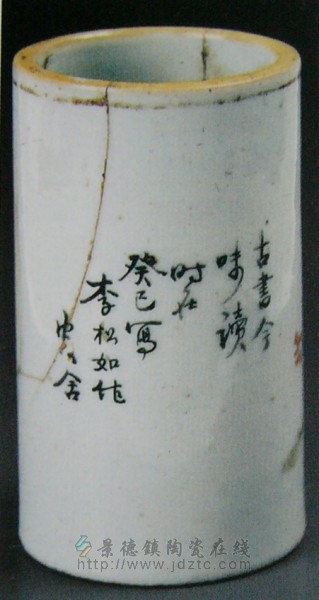 古書今
味讀
時在
癸巳寫
李松如作
舍
景德鎮陶瓷在线
http://www.jdztc.com